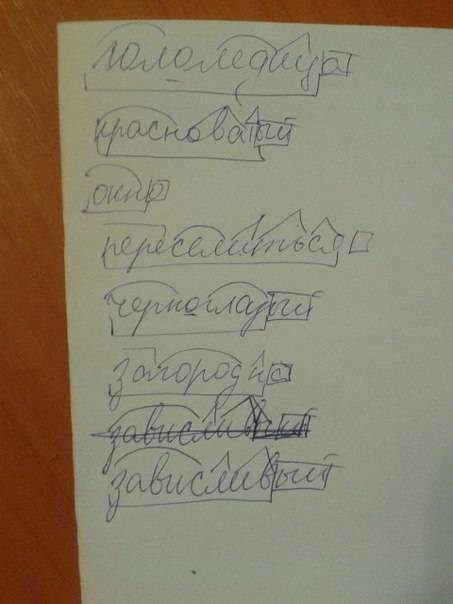 гололедица
красноватый
окно
переселиться
черноглазый
загородка
зависливый